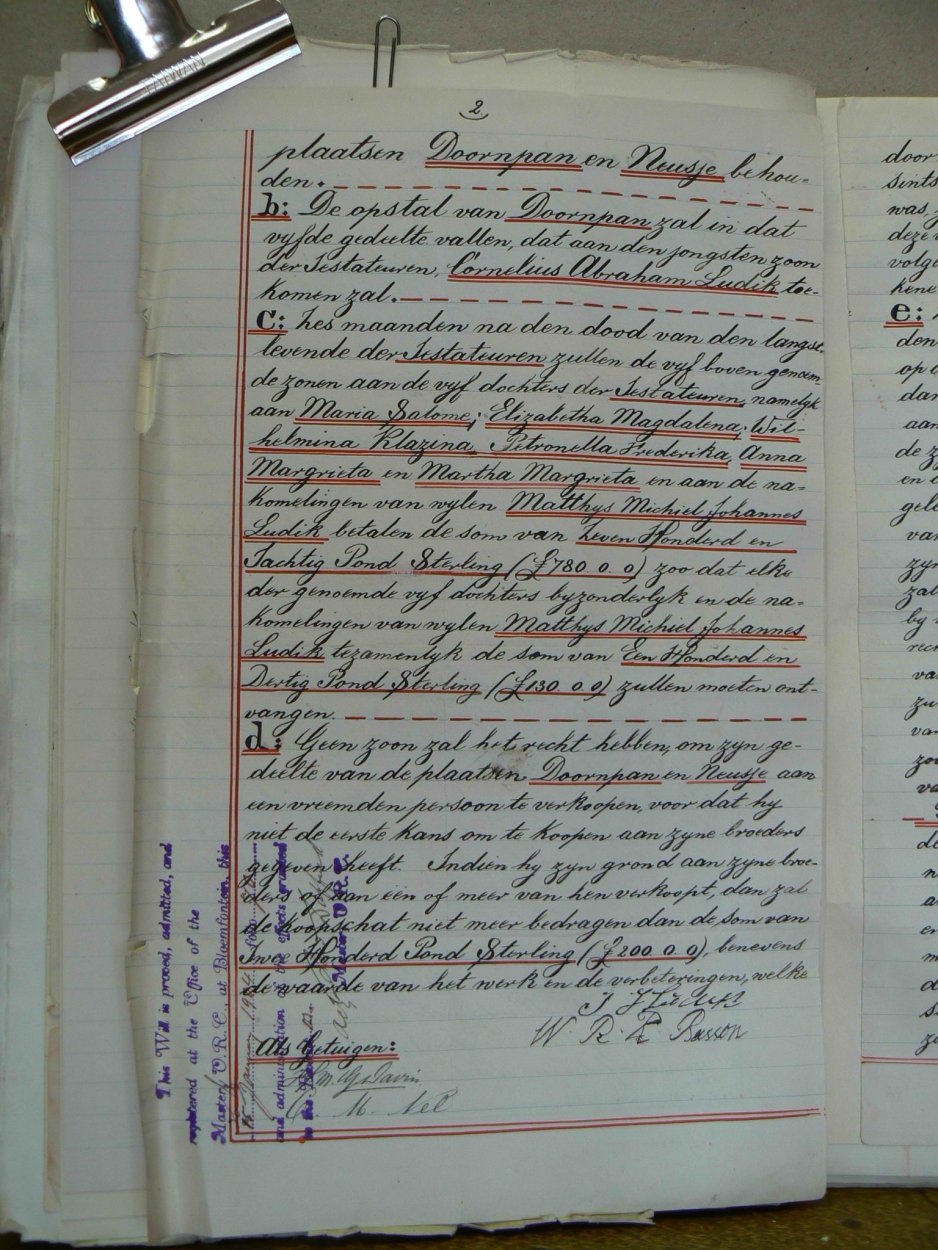 TAIWAN
2
plaatsen Doornpan en Neusje behou-
den.
b: De opstal van Doornpan zal in dat
vyfde gedeelte vallen, dat aan den jongsten zoon
der Testateuren, Cornelius Abraham Ludik toe-
komen zal.
c: Zes maanden na den dood van den langst-
levende der Testateuren zullen de vyf boven genoem
de zonen aan de vyf dochters der Testateuren, namelyk
aan Maria Salome; Elizabetha Magdalena; Wil-
helmina Klazina, Petronella Frederika, Anna
Margrieta en Martha Margrieta en aan de na-
komelingen van wylen Matthys Michiel Johannes
Ludik betalen de som van Zeven Honderd en
Tachtig Pond Sterling (£780. 0. 0) zoo dat elke
der genoemde vyf dochters byzonderlyk en de na-
komelingen van wylen Matthys Michiel Johannes
Ludik tezamenlyk de som van Een Honderd en
Dertig Pond Sterling (£130. 0. 0) zullen moeten ont-
vangen.
d: Geen zoon zal het recht hebben, om zyn ge-
deelte van de plaatsen Doornpan en Neusje aan
een vreemden persoon te verkoopen, voor dat hy
niet de eerste kans om te koopen aan zyne broeders
gegeven heeft. Indien hy zyn grond aan zyne broe-
ders of aan een of meer van hen verkoopt, dan zal
de koopschat niet meer bedragen dan de som van
Twee Honderd Pond Sterling (£200. 0. 0), benevens
de waarde van het werk en de verbeteringen, welke
W R Basson
Als Getuigen:
M. Nel
This Will is proved, admitted, and
registered at the Office of the
Master, O.R.C., at Bloemfontein, this
and administration of the effects granted
to the
Master, O.R.C.
door
sints
was
deze
volge
kene
e:
den
op
dan
aan
de z
en
gele
van
zyn
zal
by
rech
va
zu
van
zoo
va
de
n
a
er
m
d
s
ze